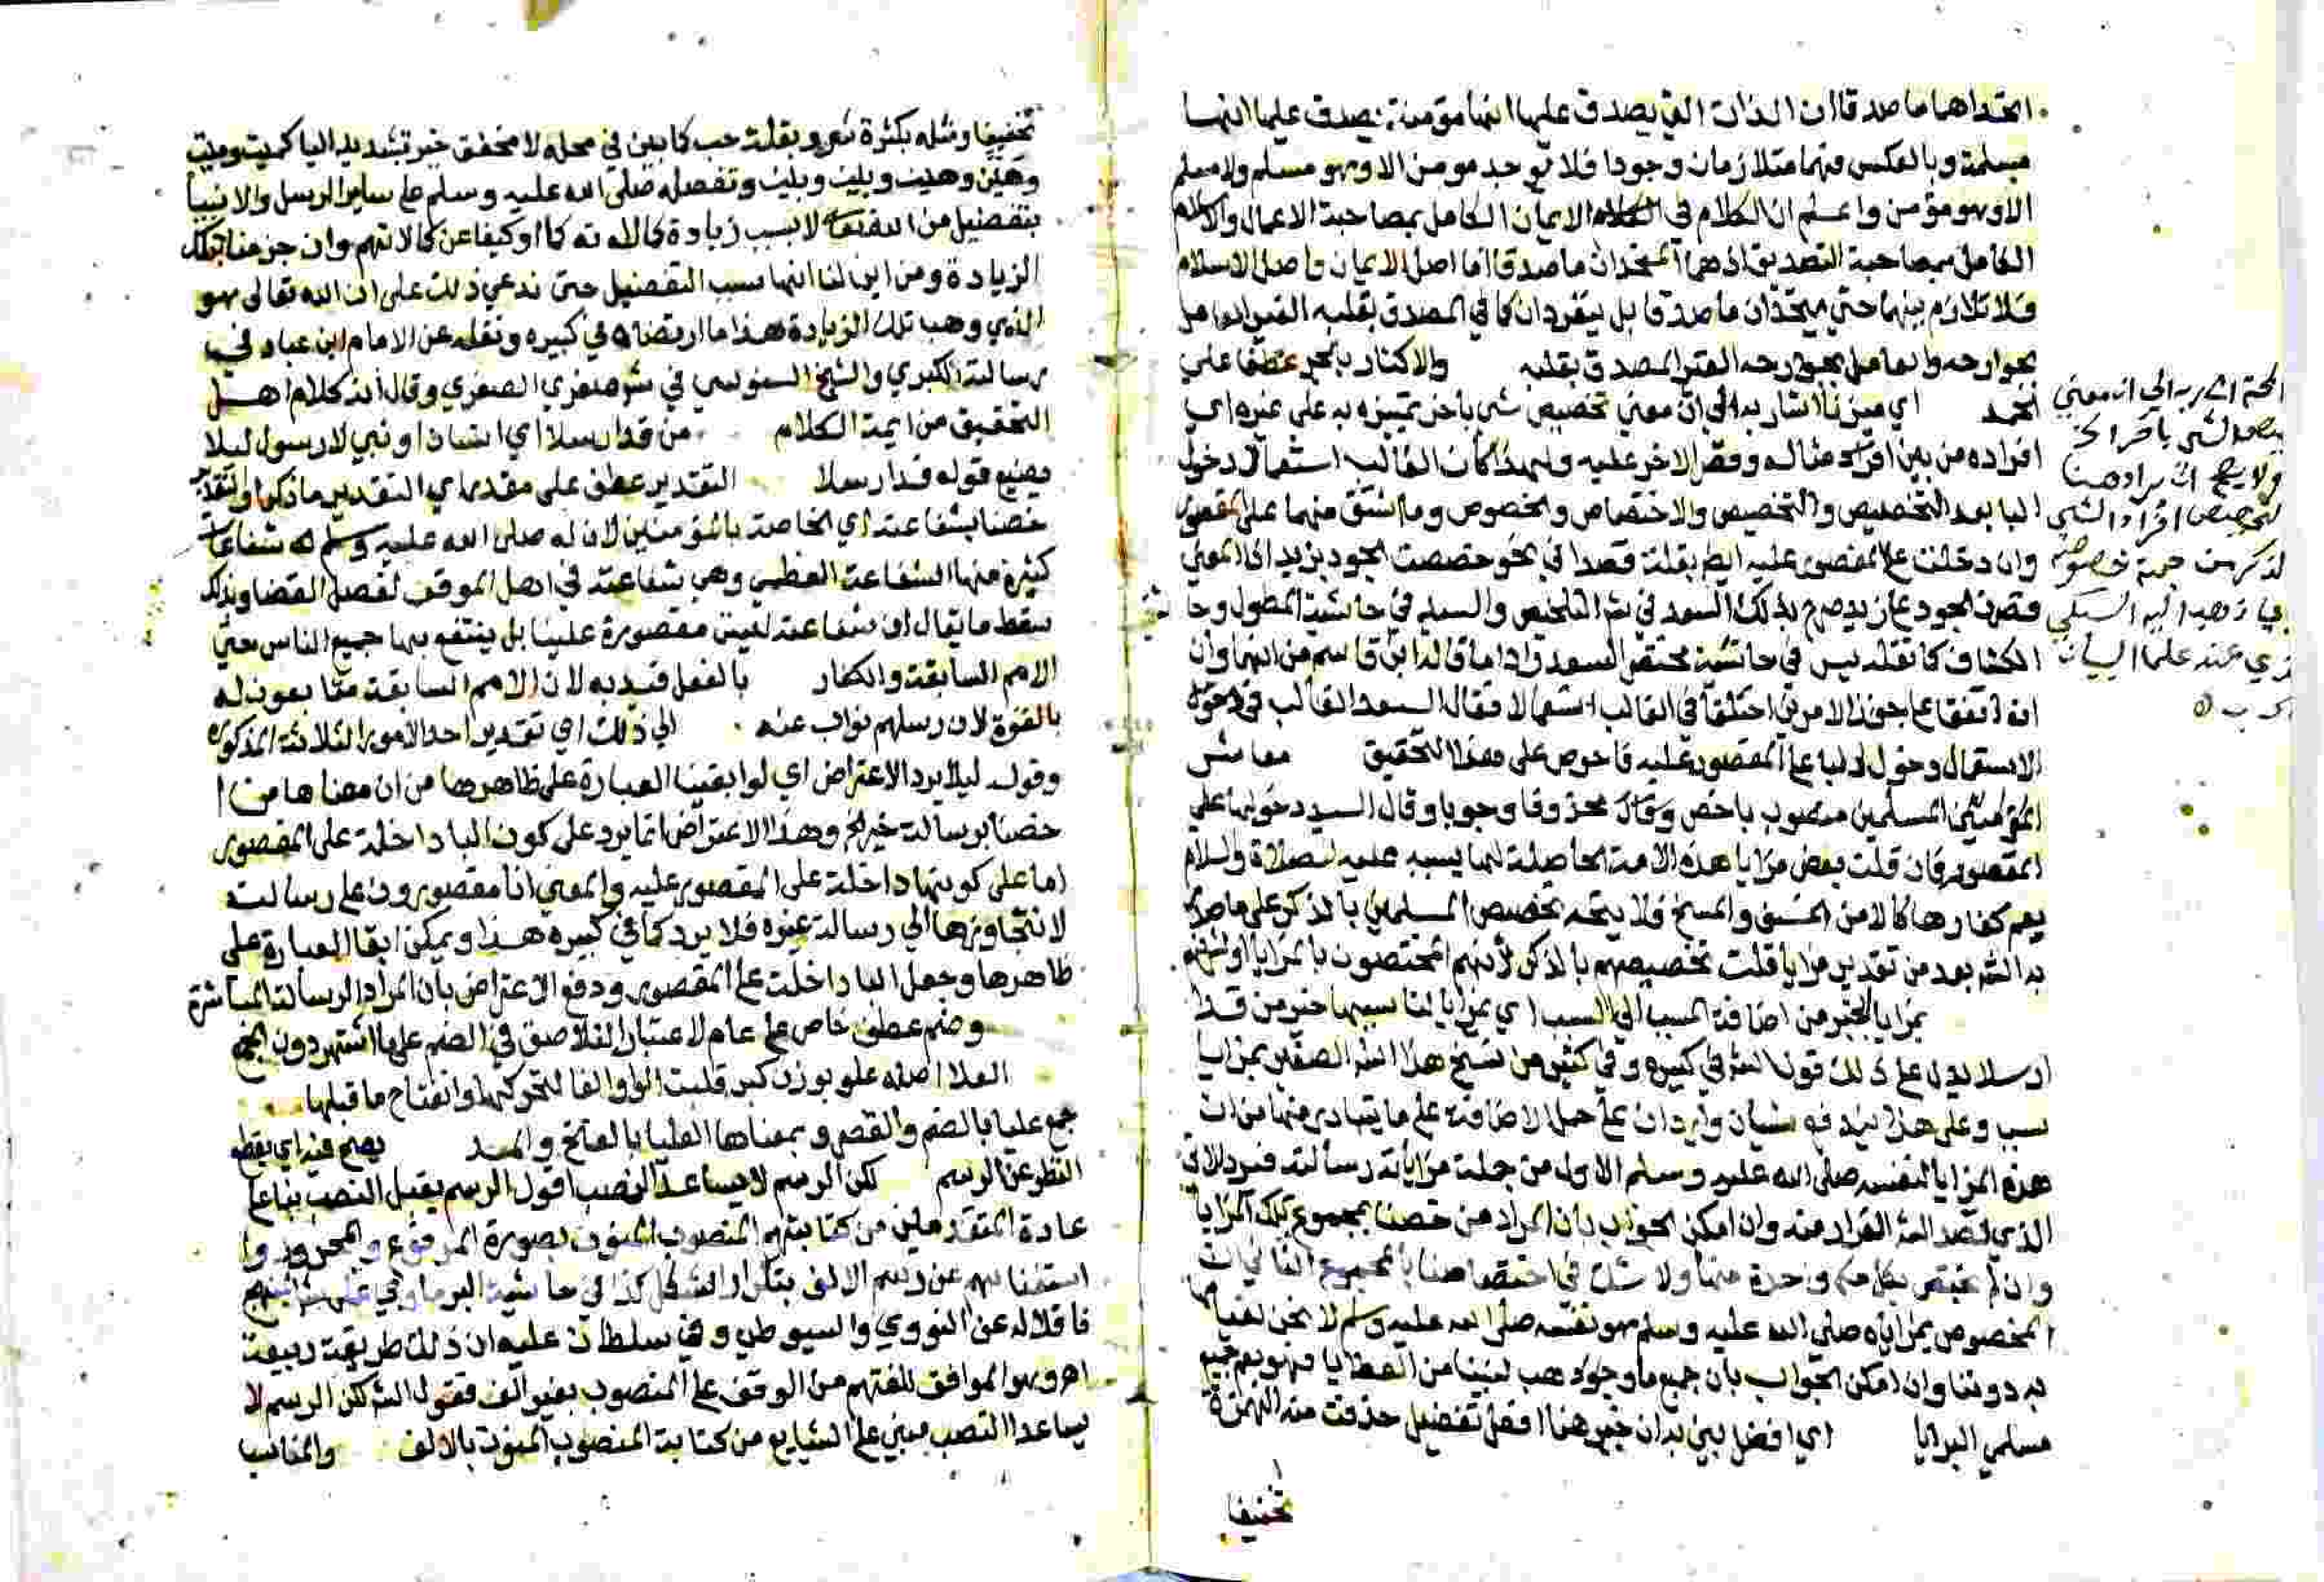 اتحداهما ماصدقا ان الذات التي يصدق عليها انها مؤمنة يصدق عليها انها
مسلمة وبالعكس فهما متلازمان وجودا فلا يوجد مومن الا وهو مسلم ولا مسلم
الا وهو مؤمن واعلم ان الكلام في الايمان الكامل بمصاحبة الاعمال والاسلام
الكامل بمصاحبة التصديق اذ هما المتحدان ماصدقا اما اصل الايمان واصل الاسلام
فلا تلازم بينهما حتي يتحدان ماصدقا بل ينفردان كما في المصدق بقلبه الغير العامل
بجوارحه والعامل بجوارحه الغير المصدق بقلبه والاكثار بالجر عطفا علي
الحمد اي ميزنا اشار به الي ان معني تخصيص شي باخر تمييزه به علي غيره اي
افراده من بين وقصر الاخر عليه ولهذا كان الغالب استعمال دخول
البا بعد التخصيص والتخصيص والاختصاص والخصوص وما اشتق منهما على المقصور
وان دخلت على المقصور عليه ايضا بقلة قصدا في نحو خصصت الجود بزيد الى المعني
قصر الجود على زيد صرح بذلك السعد في شرح التلخيص والسيد في حاشية المطول وحا
الكشاف كما نقله يس في حاشية مختصر السعد ابن قاسم من انهما وان
اتفقا على جواز الامرين اختلفا في الغالب استعمالا فقال السعد الغالب في
الاستعمال دخول البا على المقصور عليه فاحرص على هذا التحقيق معاشر
المؤمنين المسلمين منصوب باخص محذوفا وجوبا وقال السيد دخولها علي
المقصور فان قلت بعض مزايا هذه الامة الحاصلة لها بسببه عليه الصلاة والسلام
يعم كفارها كالامن من الخسف والمسخ فلا يتجه تخصيص المسلمين بالذكر على ما صرح
به الشر بعد من تقدير مزايا قلت تخصيصهم بالذكر لانهم المختصون بالمزايا
بمزايا الخير من اضافة المسبب الي السبب اي بمزايا لنا سببها خير من قد
ارسلا يدل على ذلك قول الشر في كبيره وفي كثير من نسخ هذا الشر الصغير بمزايا
بسبب وعلى هذا شيئان واردان على حمل الاضافة على ما يتبادر منها من ان
هذه المزايا لنفسه صلى الله عليه وسلم الاول من جملة مزاياه رسالته
الذي قصد الشر الفرار منه وان امكن الجواب بان المراد من خصنا بمجموع تلك المزايا
وان لم نختص بكل واحدة منها ولا شك في اختصاصنا بالمجموع الثاني ان
المخصوص بمزاياه صلى الله عليه وسلم هو نفسه صلى الله عليه وسلم لا نحن
به دوننا وان امكن الجواب بان جميع ما وجوده هبة لنبينا من العطايا فهو يعم جميع
مسلمي البرايا اي افضل بين به ان خير هنا افعل تفضيل حذفت منه الهمزة
تخفيفا
اشار به الي ان معني
الشي باخر الخ
ولا يصح ان يراد هنا
افراد الشي
لذكر من جهة خصوص
ذهب اليه السبكي
عند علما البيان
تخفيفا ومثله بكثرة شر وبقلة حب كما بين في محله لا مخفف خير بتشديد اليا كميت وميت
وهين وهين ولين ولين وتفضله صلى الله عليه وسلم على ساير الرسل والانبيا
بتفضيل من الله تعالى لا بسبب زيادة كمالاته كما او كيفا عن كمالاتهم وان جزمنا بتلك
الزيادة ومن اين لنا انها سبب التفضيل حتى ندعي ذلك على ان الله تعالى هو
الذي وهب تلك الزيادة هذا ما ارتضاه في كبيره ونقله عن الامام ابن عباد في
رسالته الكبري والشيخ السنوسي في شرح صغري الصغري وقال انه كلام اهل
التحقيق من ايمة الكلام من قد ارسلا اي انسانا او نبي لا رسول ليلا
يضيع قوله قد ارسلا التقدير عطف على مقدر اي التقدير ما ذكر او التقدير
خصنا بشفاعته اي الخاصة بالمؤمنين لان له صلى الله عليه وسلم شفاعات
كثيرة منها الشفاعة العظمي وهي شفاعته في اهل الموقف لفصل القضا وبذلك
سقط ما يقال ان شفاعته ليست مقصورة علينا بل ينتفع بها جميع الناس حتي
الامم السابقة والكفار بالفعل قيد به لان الامم السابقة متابعون له
بالقوة لان رسلهم نواب عنه الي ذلك اي تقدير احد الامور الثلاثة المذكورة
وقوله ليلا يرد الاعتراض اي لو ابقينا العبارة على ظاهرها من ان معناها من
خصنا برسالة خير الخ وهذا الاعتراض انما يرد على كون البا داخلة على المقصور
اما على كونها داخلة على المقصور عليه والمعني انا مقصورون على رسالته
لا نتجاوزها الي رسالة غيره فلا يرد كما في كبيره هذا ويمكن ابقا العبارة على
ظاهرها وجعل البا داخلة على المقصور ودفع الاعتراض بان المراد الرسالة المباشرة
وضم عطف خاص على عام لاعتبار التلاصق في الضم على ما اشتهر دون الجمع
العلا اصله علو بوزن كبر قلبت الواو الفا لتحركها وانفتاح ما قبلها
جمع عليا بالضم والقصر وبمعناها العليا بالفتح والمد يصح فيه اي بقطع
النظر عن الرسم لكن الرسم لا يساعد النصب اقول الرسم يقبل النصب بناء على
عادة المتقدمين من كتابتهم المنصوب المنون بصورة المرفوع والمجرور وا
استغنائهم عن رسم الالف بتكرار الشكل كذا في حاشية البرماوي
ناقلا له عن النووي والسيوطي عليه ان ذلك طريقة ربيعة
اهـ وهو الموافق للغتهم من الوقف على المنصوب بغير الف فقول الشر لكن الرسم لا
يساعد النصب مبني على الشايع من كتابة المنصوب المنون بالالف والمناسب